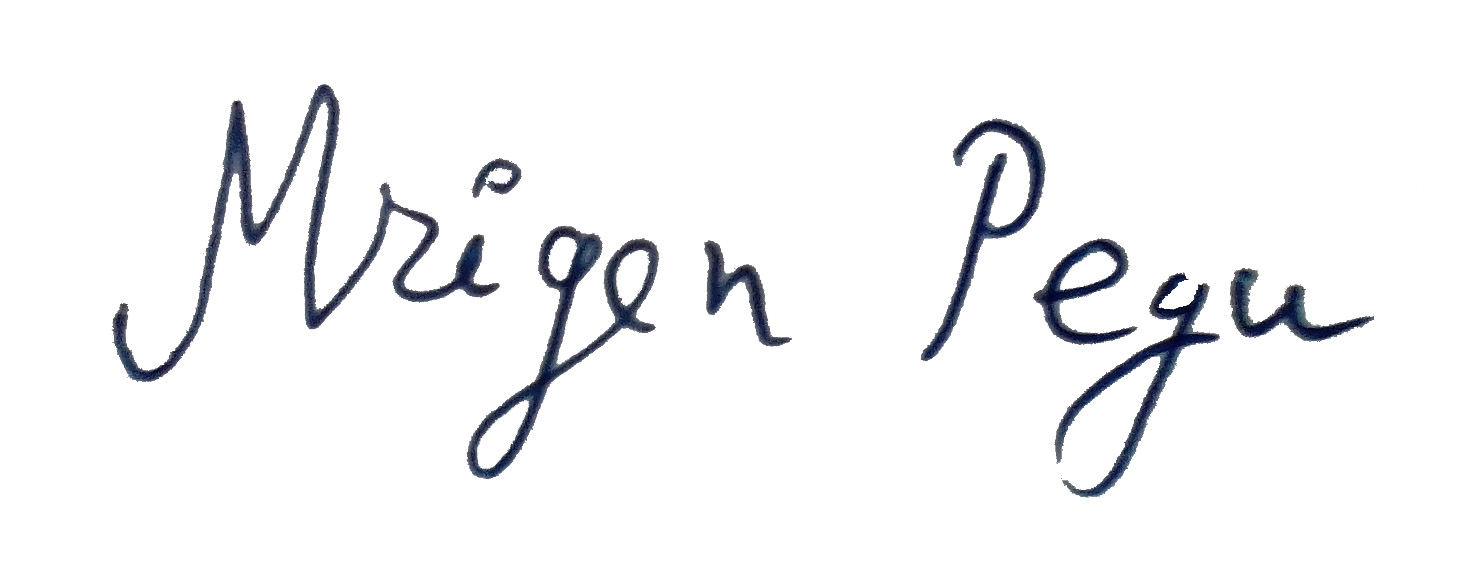 Mrigen Pegu